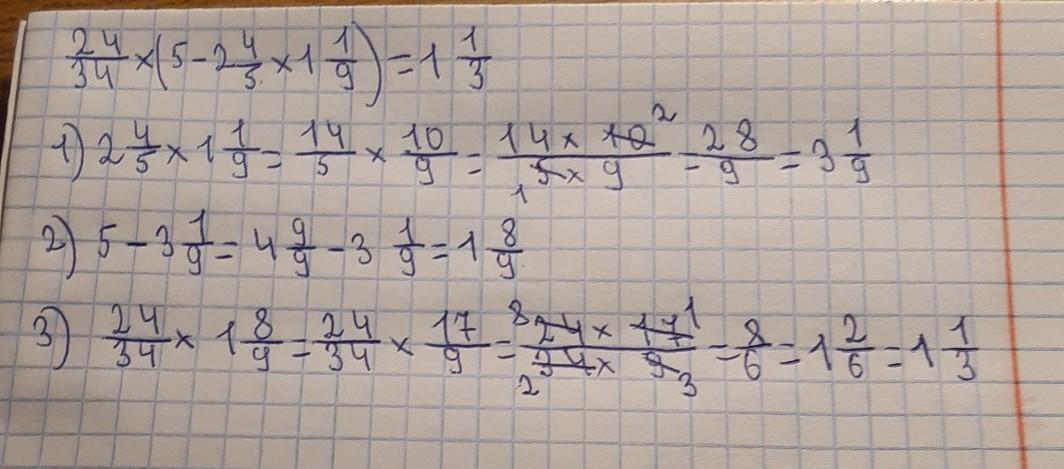 24/34 × (5 - 2 4/5 × 1 1/9) = 1 1/3
1) 2 4/5 × 1 1/9 = 14/5 × 10/9 = 14 × 10 2 / 1 5 × 9 = 28/9 = 3 1/9
2) 5 - 3 1/9 = 4 9/9 - 3 1/9 = 1 8/9
3) 24/34 × 1 8/9 = 24/34 × 17/9 = 8 24 × 17 1 / 2 34 × 9 3 = 8/6 = 1 2/6 = 1 1/3